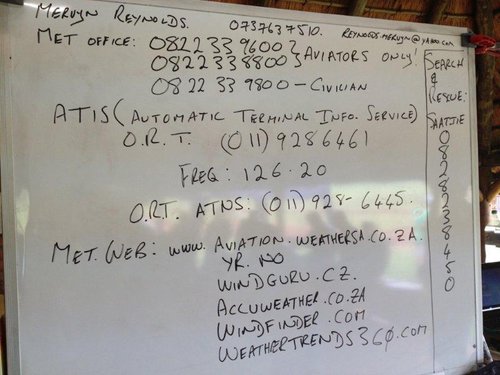 MERVYN REYNOLDS. 0737637510. REYNOLDS.MERVYN@YAHOO.COM
MET OFFICE: 0822339600 } AVIATORS ONLY!
0822338800
082 233 9800 - CIVILIAN
ATIS (AUTOMATIC TERMINAL INFO. SERVICE)
O.R.T. (011) 9286461
FREQ: 126.20
O.R.T. ATNS: (011) 928-6445.
MET. WEB: WWW.AVIATION.WEATHERSA.CO.ZA.
YR.NO
WINDGURU.CZ.
ACCUWEATHER.CO.ZA
WINDFINDER.COM
WEATHERTRENDS360.COM
SEARCH
&
RESCUE:
SAATJIE
0
8
2
8
2
3
8
4
5
0